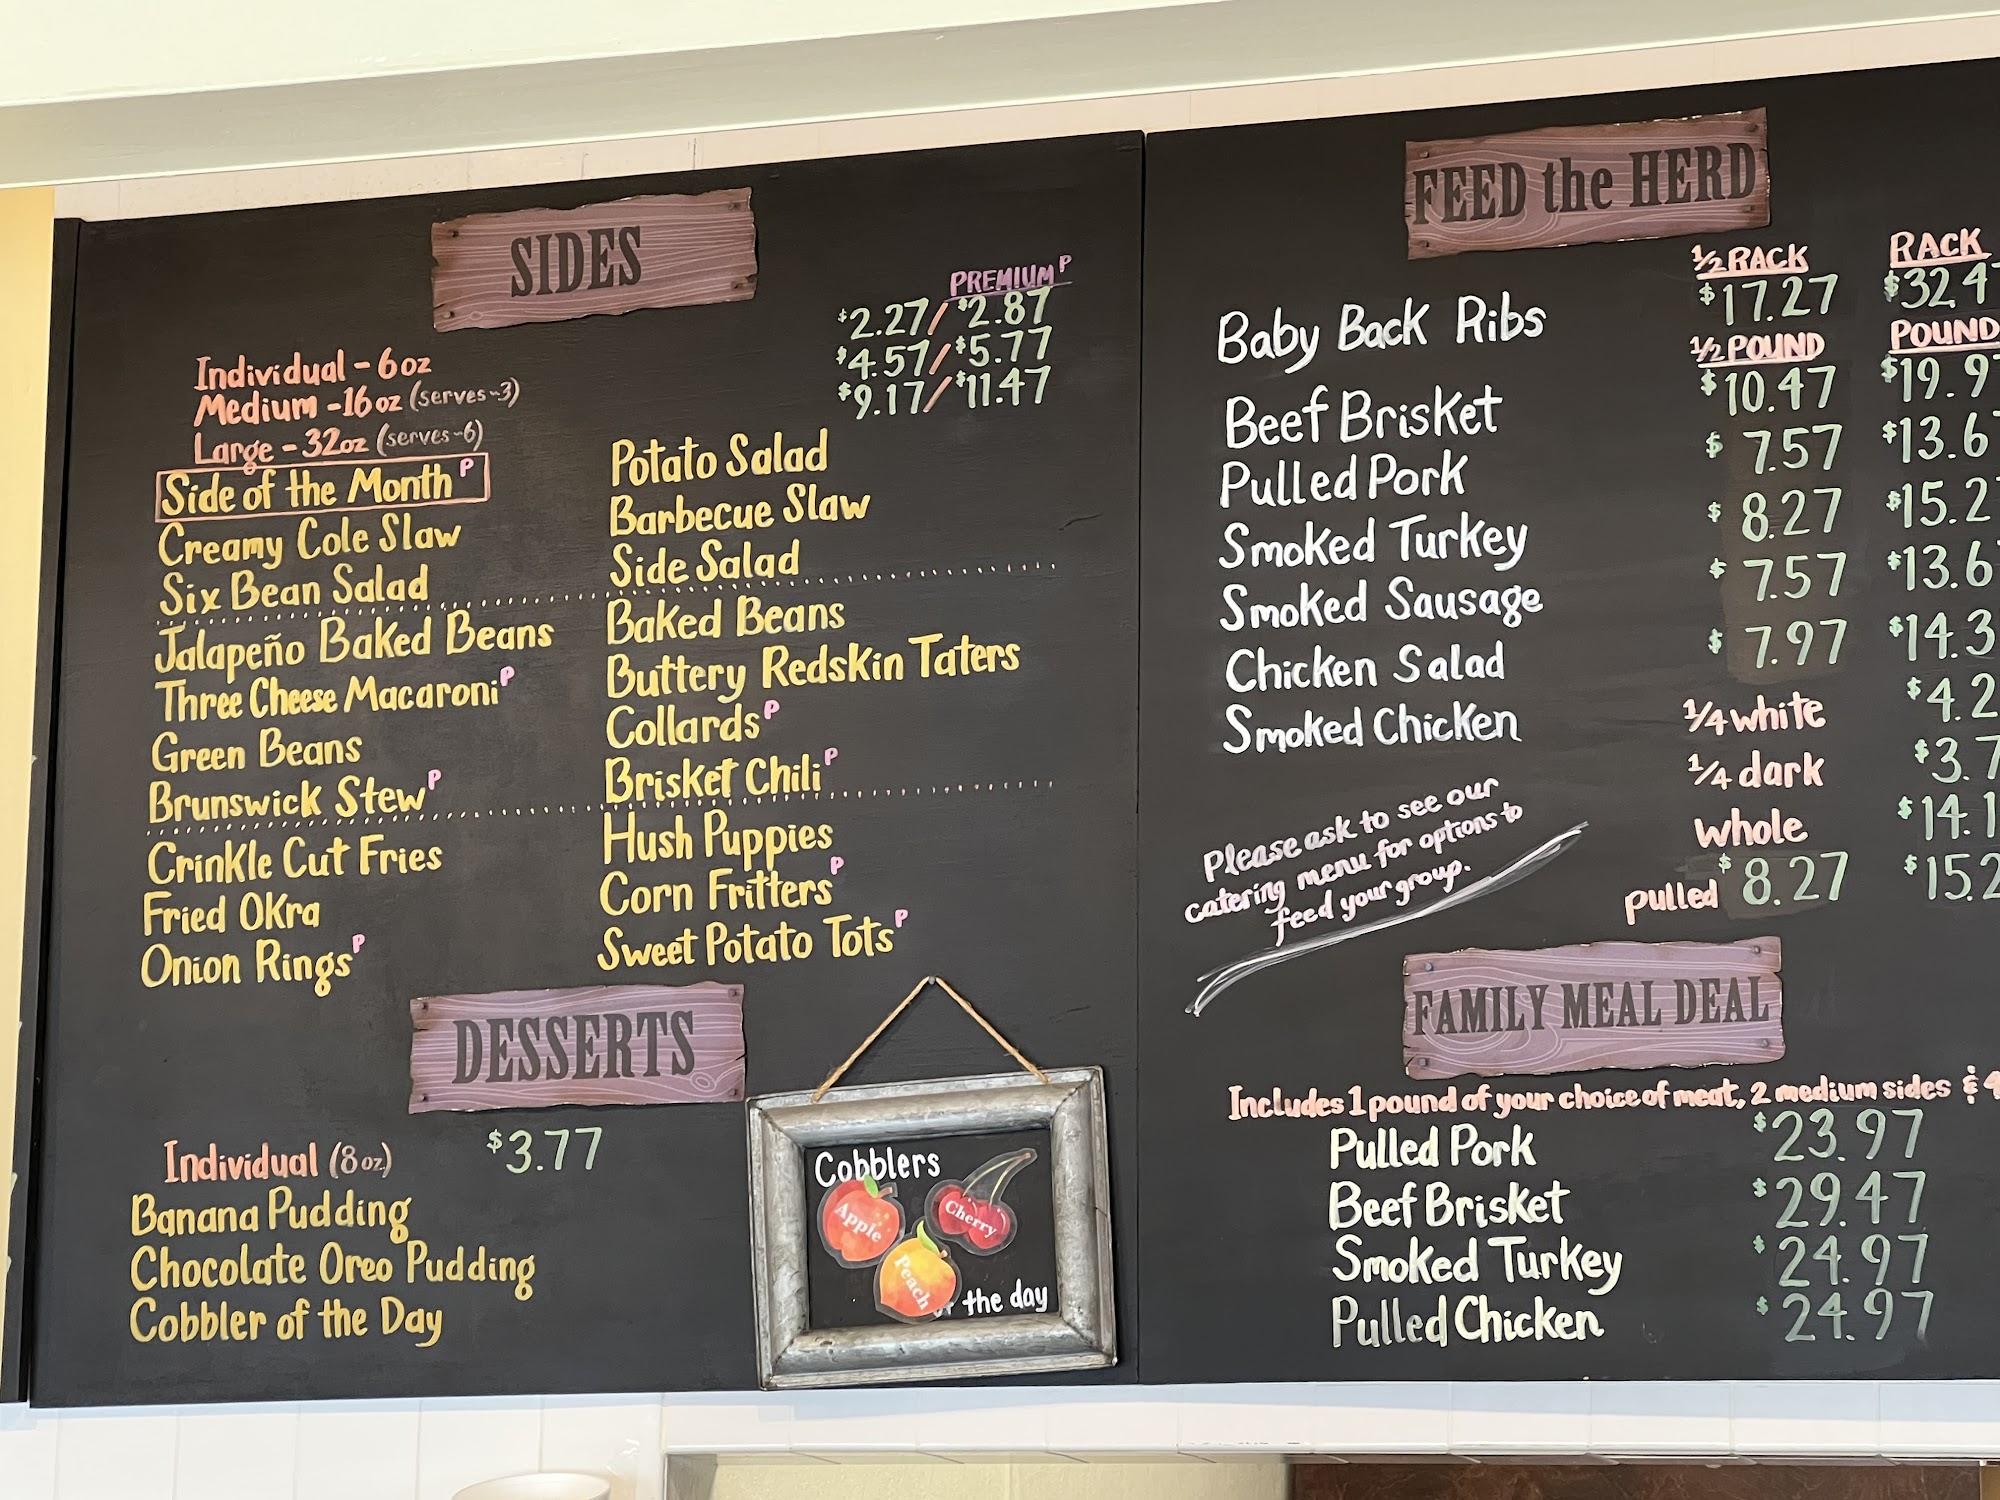 SIDES
PREMIUM P
Individual - 6oz $2.27/$2.87
Medium - 16oz (serves~3) $4.57/$5.77
Large - 32oz (serves~6) $9.17/$11.47
Side of the Month P
Creamy Cole Slaw
Six Bean Salad
Jalapeño Baked Beans
Three Cheese Macaroni P
Green Beans
Brunswick Stew P
Crinkle Cut Fries
Fried Okra
Onion Rings P
Potato Salad
Barbecue Slaw
Side Salad
Baked Beans
Buttery Redskin Taters
Collards P
Brisket Chili P
Hush Puppies
Corn Fritters P
Sweet Potato Tots P
DESSERTS
Individual (8oz) $3.77
Banana Pudding
Chocolate Oreo Pudding
Cobbler of the Day
Cobblers
Apple
Cherry
Peach
the day
FEED the HERD
1/2 RACK RACK
Baby Back Ribs $17.27 $32.4
1/2 POUND POUND
Beef Brisket $10.47 $19.9
Pulled Pork $7.57 $13.6
Smoked Turkey $8.27 $15.2
Smoked Sausage $7.57 $13.6
Chicken Salad $7.97 $14.3
Smoked Chicken 1/4 white $4.2
1/4 dark $3.7
whole $14.1
pulled $8.27 $15.2
Please ask to see our
catering menu for options to
feed your group.
FAMILY MEAL DEAL
Includes 1 pound of your choice of meat, 2 medium sides & 4
Pulled Pork $23.97
Beef Brisket $29.47
Smoked Turkey $24.97
Pulled Chicken $24.97